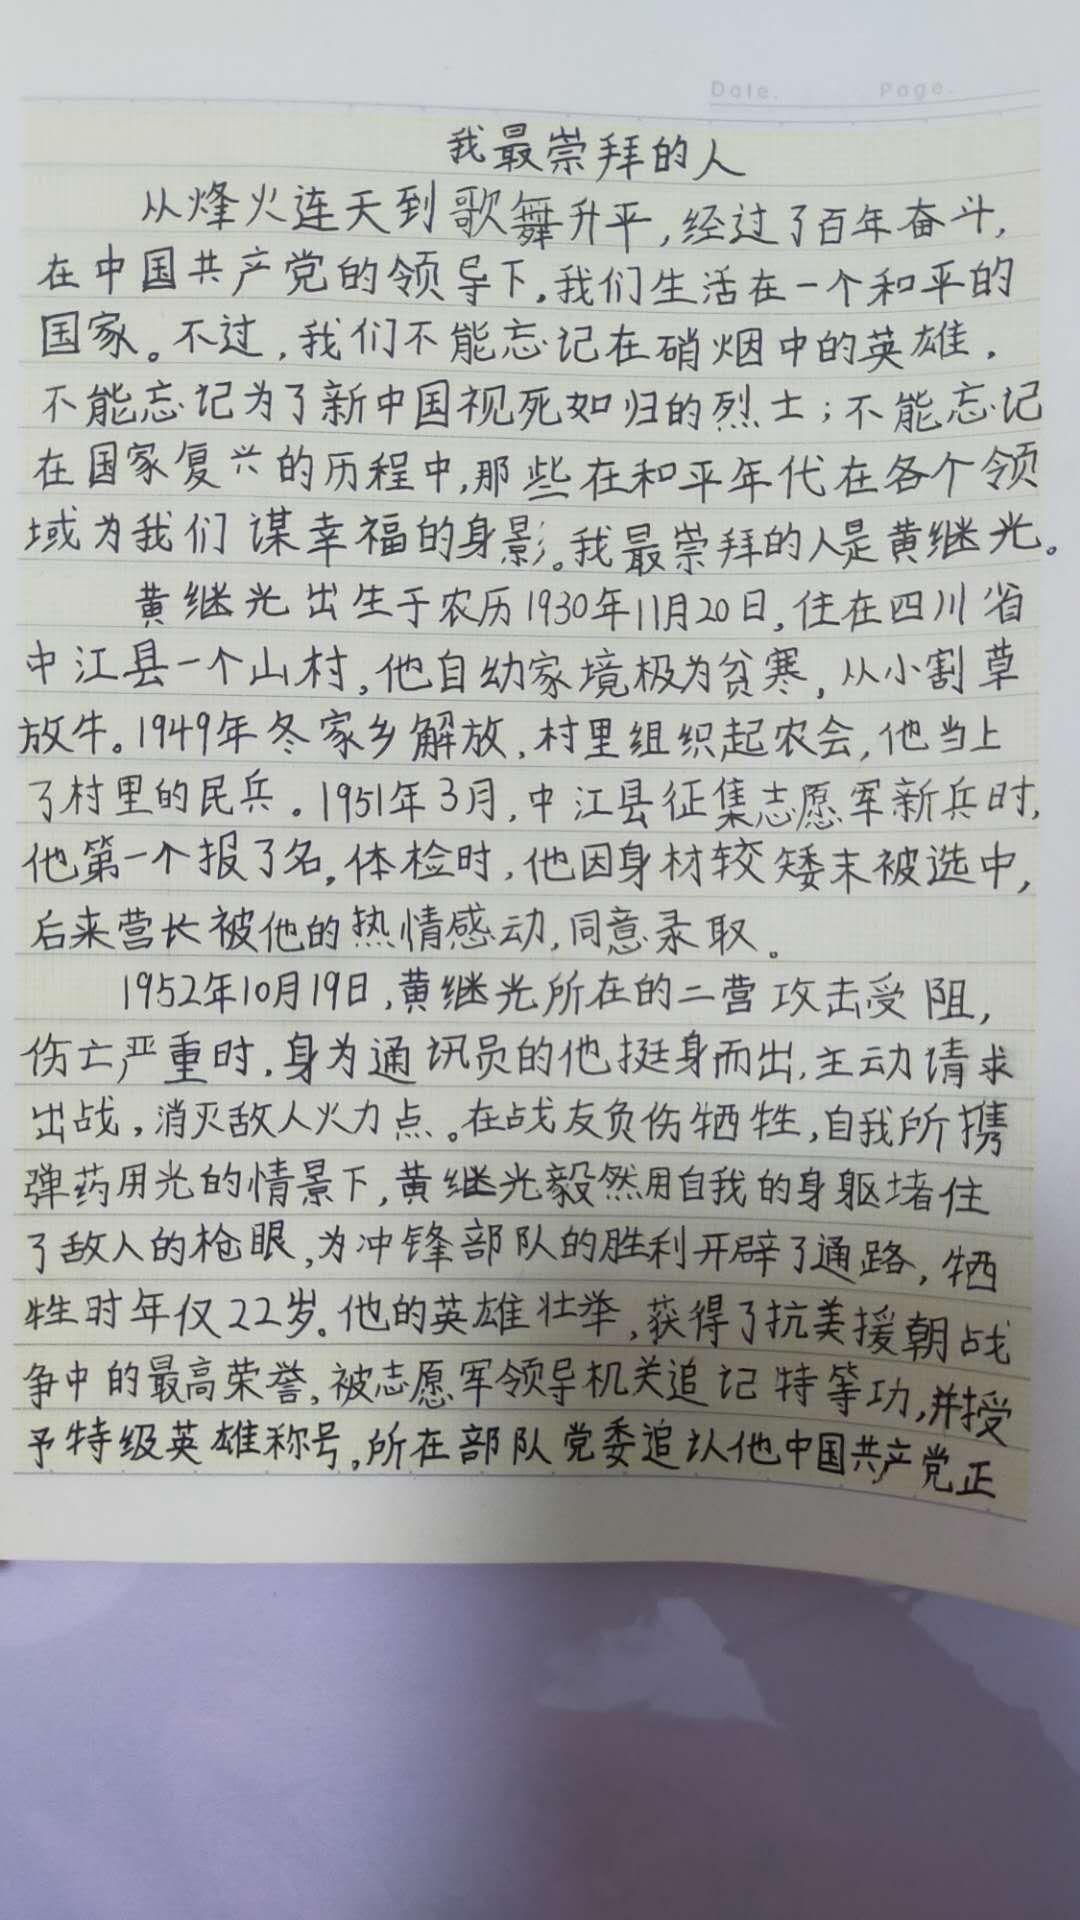 Date.    Page.
我最崇拜的人
从烽火连天到歌舞升平,经过了百年奋斗,
在中国共产党的领导下,我们生活在一个和平的
国家。不过,我们不能忘记在硝烟中的英雄,
不能忘记为了新中国视死如归的烈士;不能忘记
在国家复兴的历程中,那些在和平年代在各个领
域为我们谋幸福的身影。我最崇拜的人是黄继光。
黄继光出生于农历1930年11月20日,住在四川省
中江县一个山村,他自幼家境极为贫寒,从小割草
放牛。1949年冬家乡解放,村里组织起农会,他当上
了村里的民兵。1951年3月,中江县征集志愿军新兵时,
他第一个报了名,体检时,他因身材较矮末被选中,
后来营长被他的热情感动,同意录取。
1952年10月19日,黄继光所在的二营攻击受阻,
伤亡严重时,身为通讯员的他挺身而出,主动请求
出战,消灭敌人火力点。在战友负伤牺牲,自我所携
弹药用光的情景下,黄继光毅然用自我的身躯堵住
了敌人的枪眼,为冲锋部队的胜利开辟了通路,牺
牲时年仅22岁。他的英雄壮举,获得了抗美援朝战
争中的最高荣誉,被志愿军领导机关追记特等功,并授
予特级英雄称号。所在部队党委追认他中国共产党正